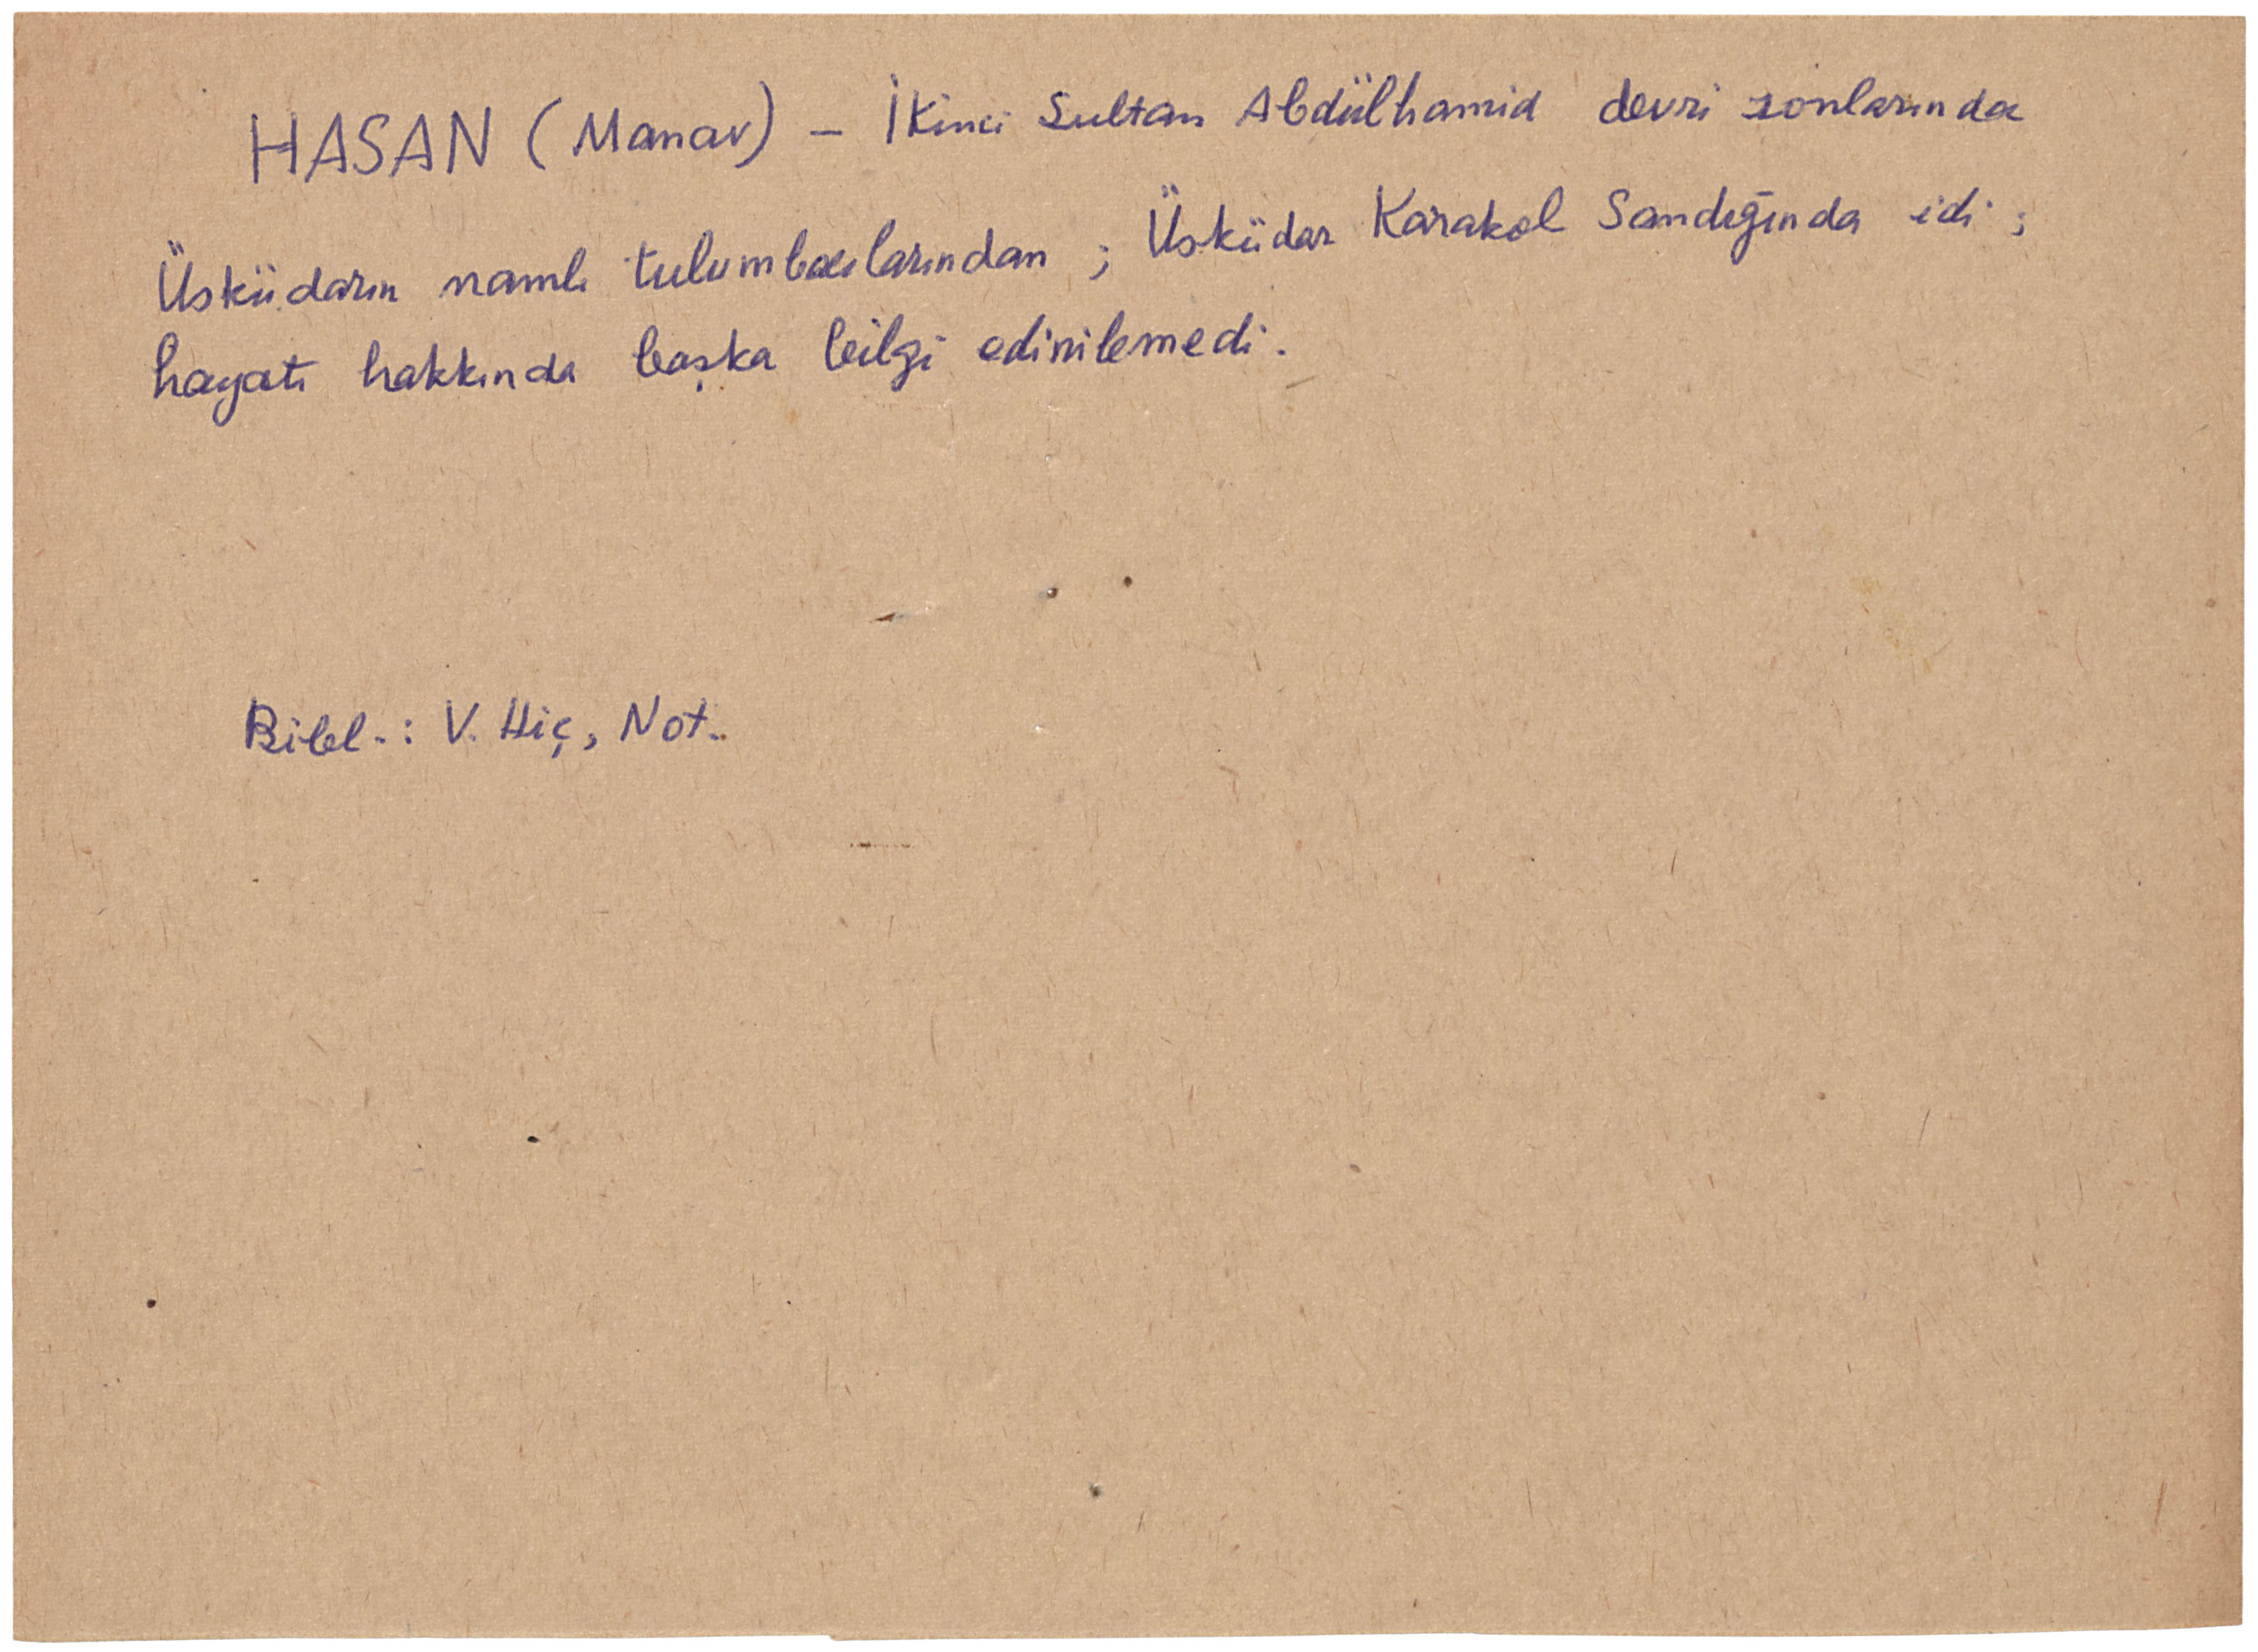 HASAN (Manav) – İkinci Sultan Abdülhamid devri sonlarında
Üsküdarın namlı tulumbacılarından ; Üsküdar Karakol Sandığında idi ;
hayatı hakkında başka bilgi edinilemedi.
Bibl.: V. Hiç, Not.